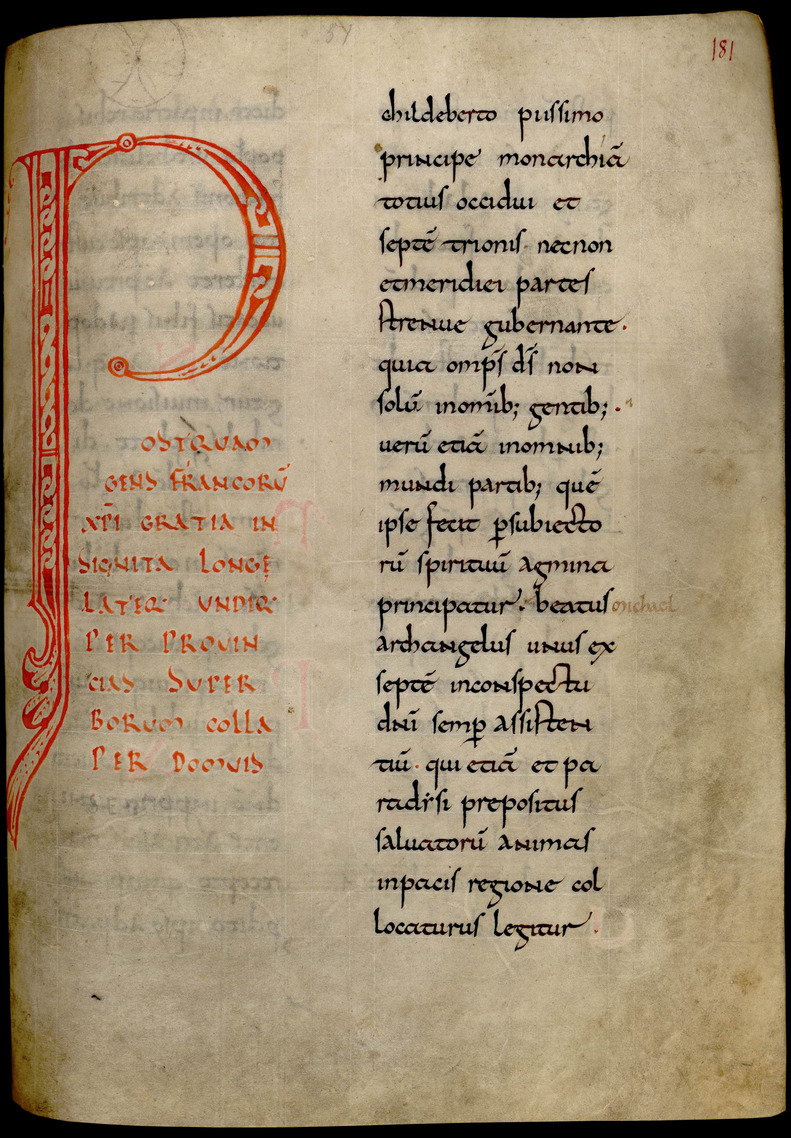 181
51
P
OSTQUAM
GENS FRANCORŪ
XP̄I GRATIA IN
SIGNITA LONGE
LATEQ UNDIQ
PER PROUIN
CIAS SUPER
BORUM COLLA
PER DOMUIS
childeberto piissimo
principe monarchiā
totius occidui et
septē trionis necnon
etmeridiei partes
strenue gubernante·
quia omp̄s d̄s non
solū inomīb; gentib;·
uerū etiā inomnib;
mundi partib; quē
ipse fecit p̱subiecto
rū spirituū agmina
principatur· beatus michael
archangelus unus ex
septē inconspectu
dn̄i semp̱ assisten
tiū· qui etiā et pa
radisi prepositus
saluatorū animas
inpacis regione col
locaturus legitur·